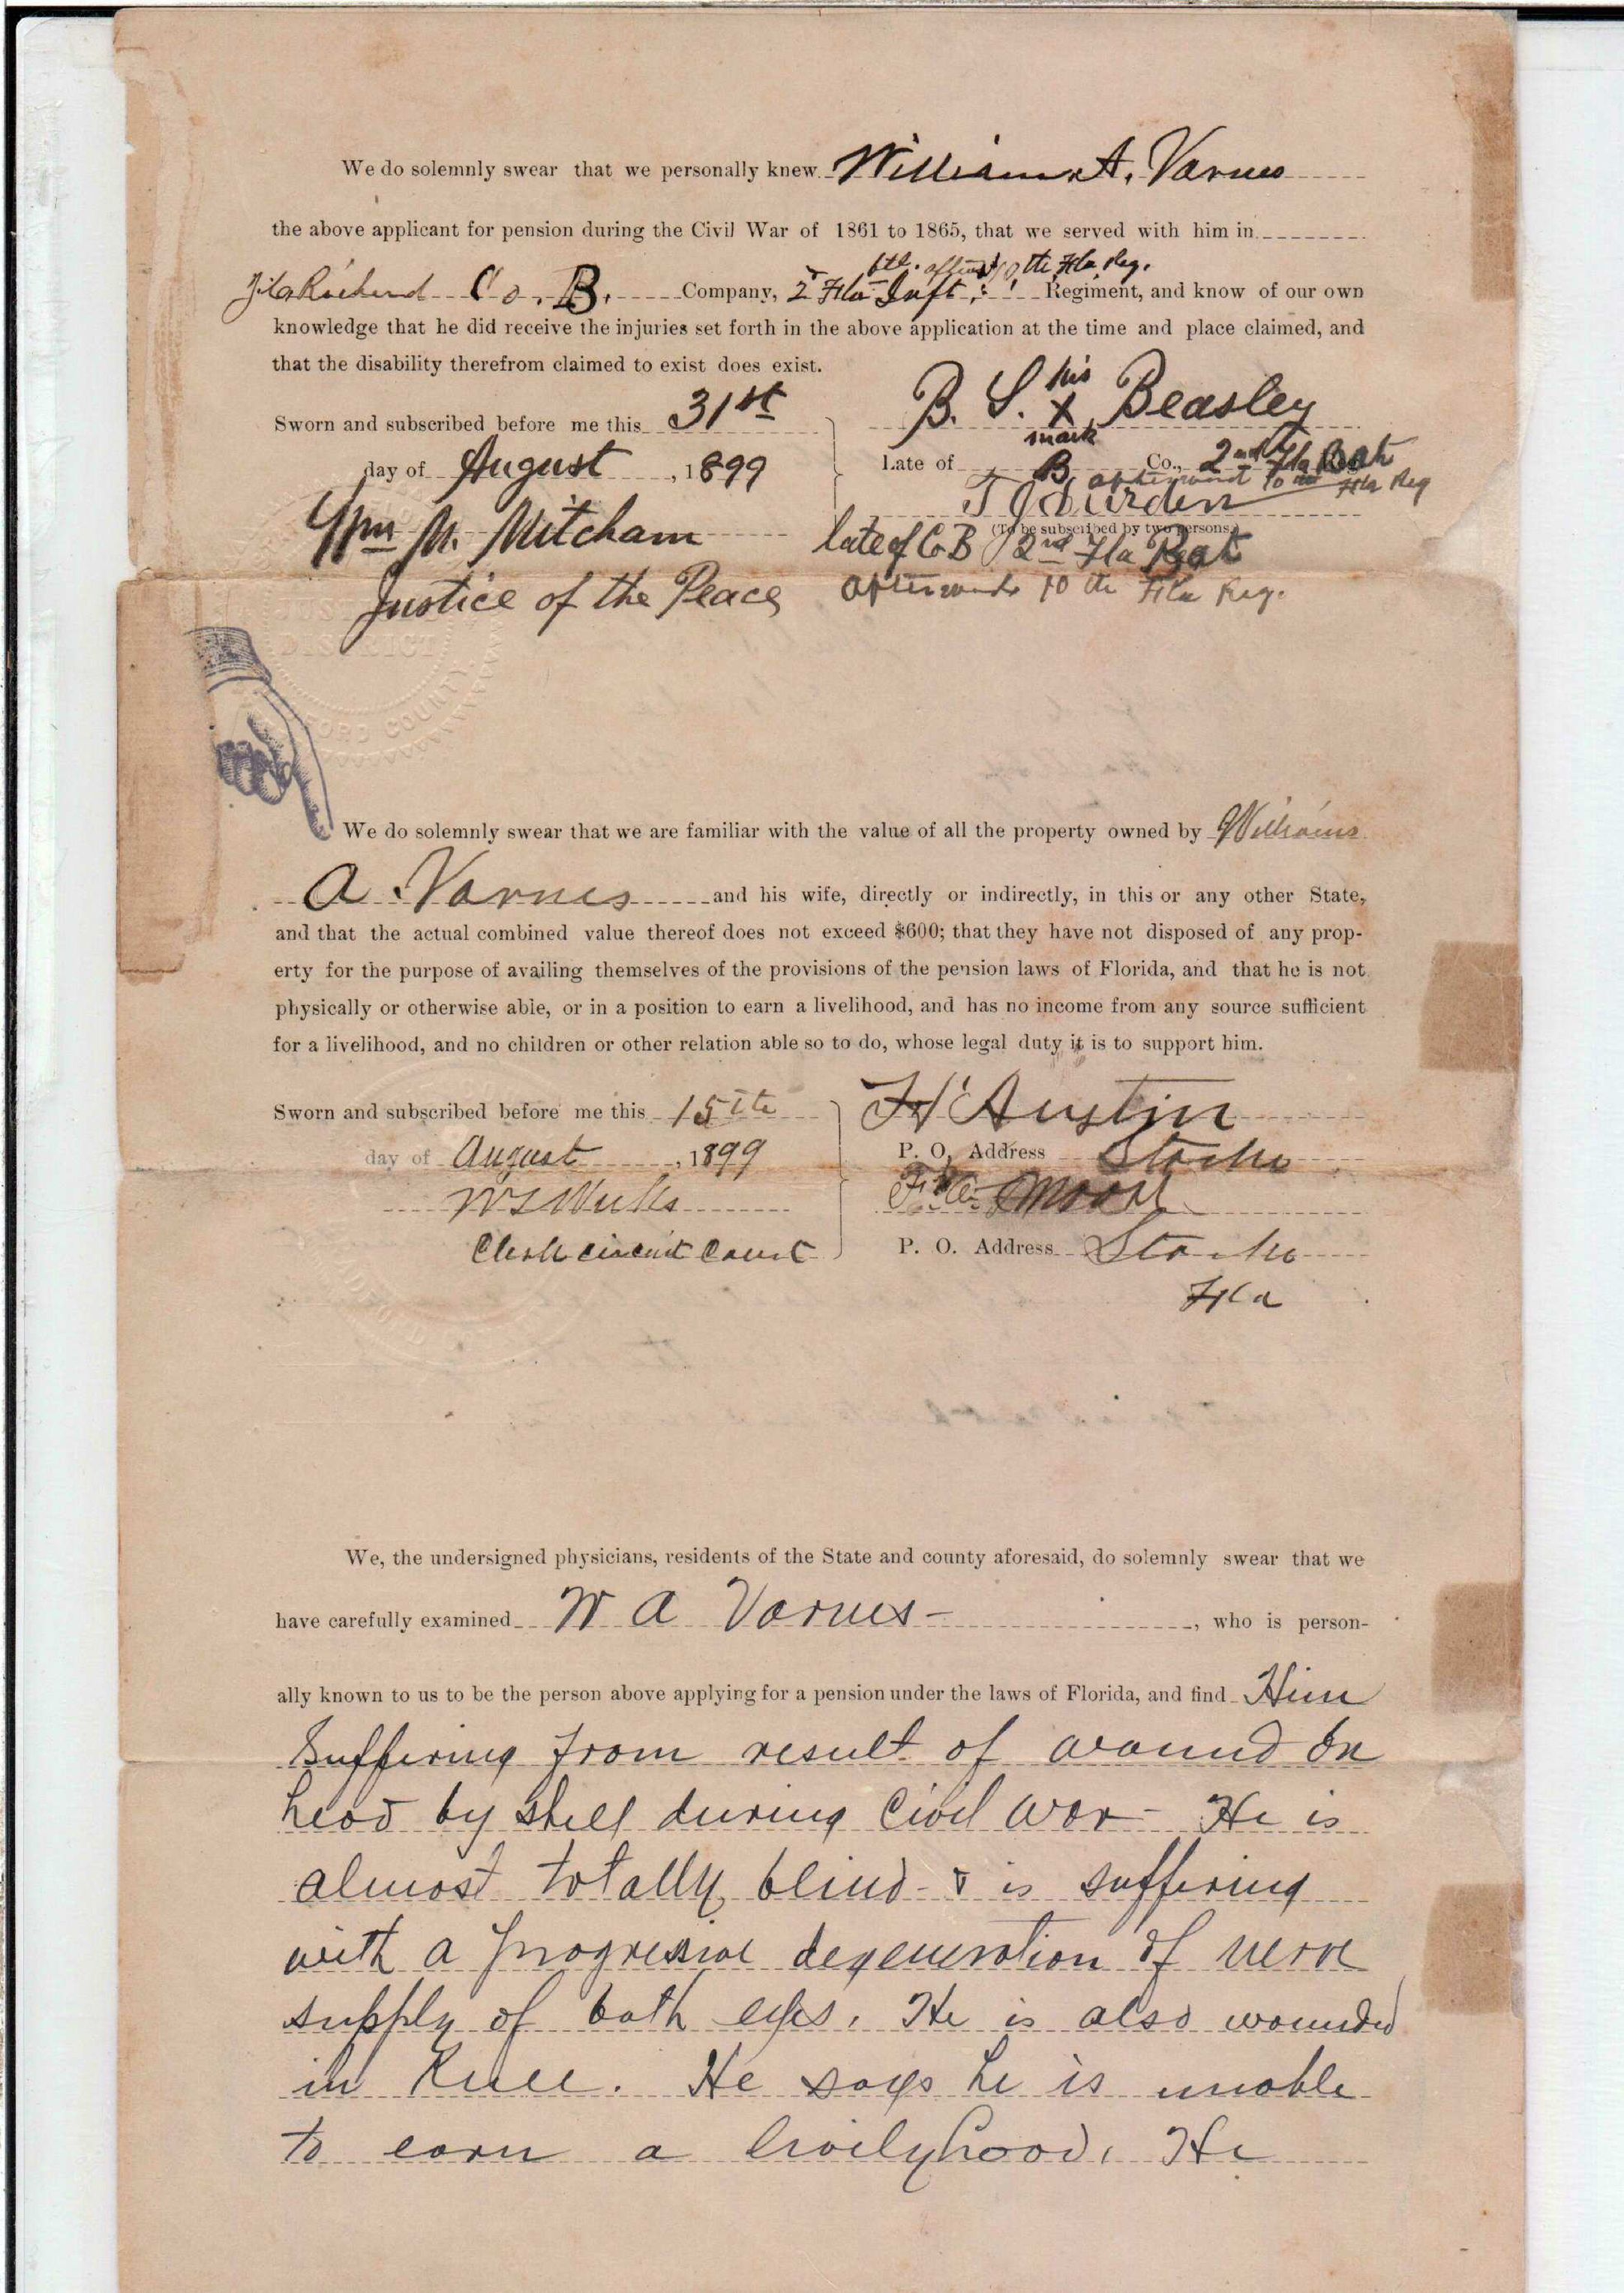 We do solemnly swear that we personally knew William A. Varnes
the above applicant for pension during the Civil War of 1861 to 1865, that we served with him in
btl. afterwd 10th Fla Reg.
Co. B. Company, 2 Fla Inft. Regiment, and know of our own
knowledge that he did receive the injuries set forth in the above application at the time and place claimed, and
that the disability therefrom claimed to exist does exist.
Sworn and subscribed before me this 31st
day of August, 1899
Wm M. Mitcham
Justice of the Peace
B. S. his X mark Beasley
Late of B Co., 2nd Fla Bat
afterward 10th Fla Reg
T J Durden
(To be subscribed by two persons.)
late of Co B 2nd Fla Bat
afterwards 10th Fla Reg.
DISTRICT
COUNTY
We do solemnly swear that we are familiar with the value of all the property owned by Williams
A. Varnes and his wife, directly or indirectly, in this or any other State,
and that the actual combined value thereof does not exceed $600; that they have not disposed of any prop-
erty for the purpose of availing themselves of the provisions of the pension laws of Florida, and that he is not
physically or otherwise able, or in a position to earn a livelihood, and has no income from any source sufficient
for a livelihood, and no children or other relation able so to do, whose legal duty it is to support him.
Sworn and subscribed before me this 15th
day of August, 1899
Clerk circuit Court
H Austin
P. O. Address Starke
Moore
P. O. Address Starke
Fla
We, the undersigned physicians, residents of the State and county aforesaid, do solemnly swear that we
have carefully examined W A Varnes-, who is person-
ally known to us to be the person above applying for a pension under the laws of Florida, and find Him
Suffering from result of wound on
head by shell during Civil War - He is
almost totally blind - & is suffering
with a progressive degeneration of nerve
supply of both eyes. He is also wounded
in Knee. He says he is unable
to earn a livelyhood. He